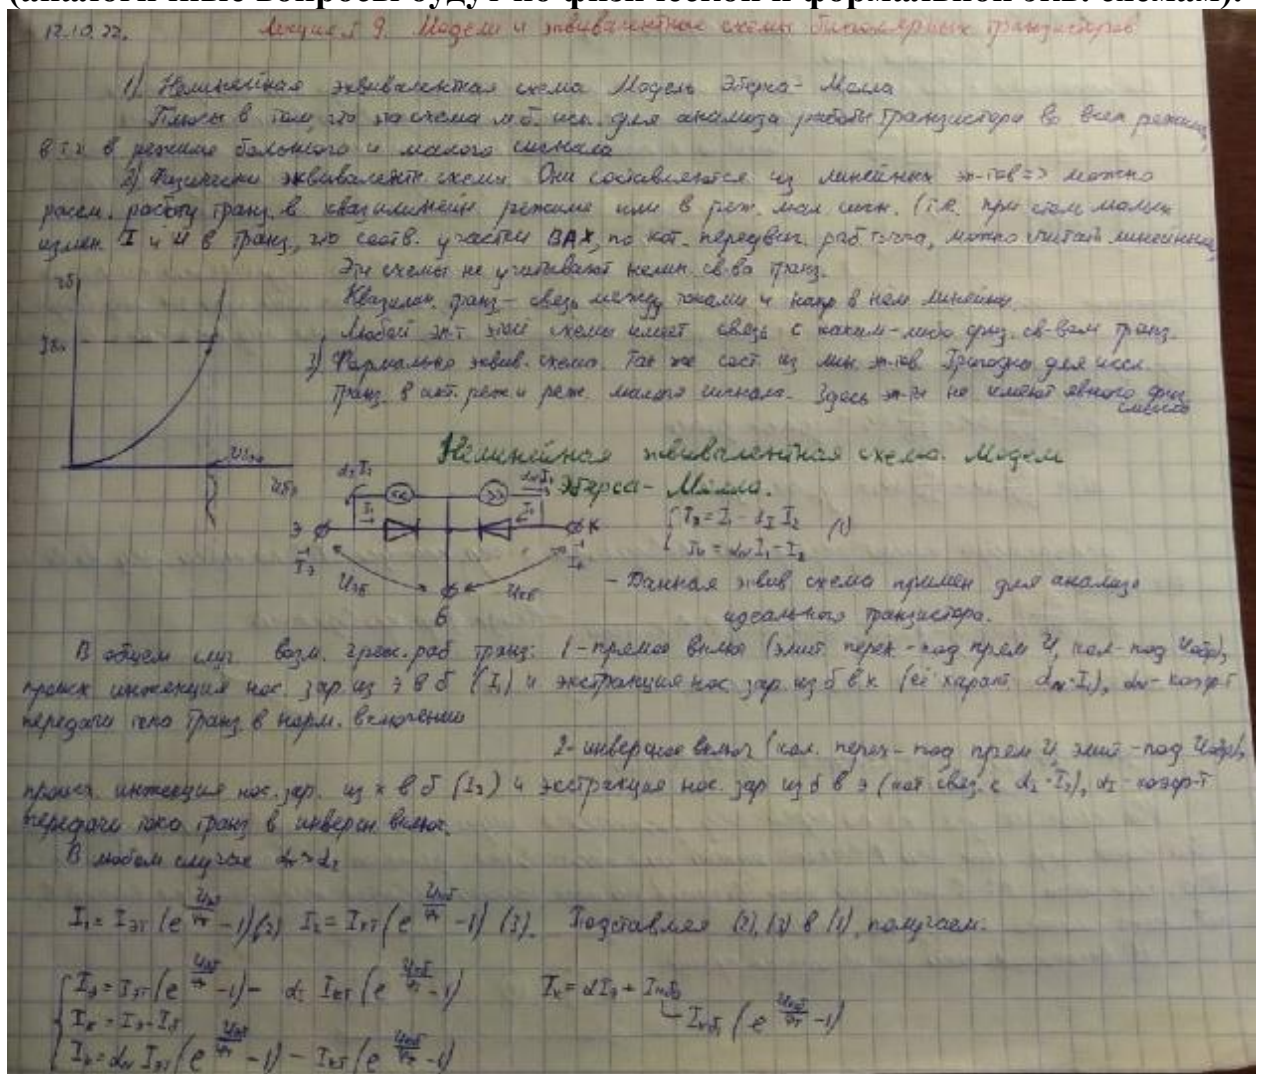 (аналогичные вопросы будут по физической и формальной экв. схемам).
12.10.22. Лекция 9. Модели и эквивалентные схемы биполярных транзисторов
1) Нелинейная эквивалентная схема Модель Эберса-Молла
Плюсы в том, что эта схема м.б. исп. для анализа работы транзистора во всех режимах,
в т.ч. в режиме большого и малого сигнала
2) Физически эквивалентн. схемы. Они составляются из линейных эл-тов => можно
рассм. работу транз. в квазилинейн. режиме или в реж. мал. сигн. (т.е. при столь малых
измен. I и U в транз., что соотв. участки ВАХ, по кот. передвиг. раб. точка, можно считать линейными,
Эти схемы не учитывают нелин. св-ва транз.
Квазилин. транз – связь между токами и напр в нём линейна.
Любой эл-т этой схемы имеет связь с каким-либо физ. св-вом транз.
3) Формально эквив. схема. Так же сост. из лин. эл-тов. Пригодна для иссл.
транз. в акт. реж и реж. малого сигнала. Здесь эл-ты не имеют явного физ.
смысла
Iб
Uбэ
Нелинейная эквивалентная схема. Модель
Эберса-Молла.
α_I I_2
α_N I_1
I_1
I_2
Э
К
I_э
I_к
Uэб
Uкб
Б
{ I_э = I_1 - α_I I_2
I_к = α_N I_1 - I_2 (1)
- Данная эквив схема примен для анализа
идеального транзистора.
В общем случ. возм. 2 реж. раб транз: 1-прямое включ (эмит перех - под прям U, кол-под Uобр),
происх инжекция нос. зар. из э в б (I_1) и экстракция нос. зар. из б в к (её характ α_N·I_1), α_N-коэф-т
передачи тока транз в норм. включении
2-инверсное включ (кол. перех - под прям U, эмит - под Uобр),
происх. инжекция нос. зар. из к в б (I_2) и экстракция нос. зар из б в э (кот связ. с α_I·I_2), α_I-коэф-т
передачи тока транз в инверсн. включ.
В любом случае α_N > α_I
I_1 = I_эт (e^{Uэб/φт} - 1) (2) I_2 = I_кт (e^{Uкб/φт} - 1) (3). Подставляя (2), (3) в (1), получаем:
{ I_э = I_эт (e^{Uэб/φт} - 1) - α_I I_кт (e^{Uкб/φт} - 1) I_к = αI_э + I_кб0
I_к = I_э - I_б I_кб0 (e^{Uкб/φт} - 1)
I_к = α_N I_эт (e^{Uэб/φт} - 1) - I_кт (e^{Uкб/φт} - 1)